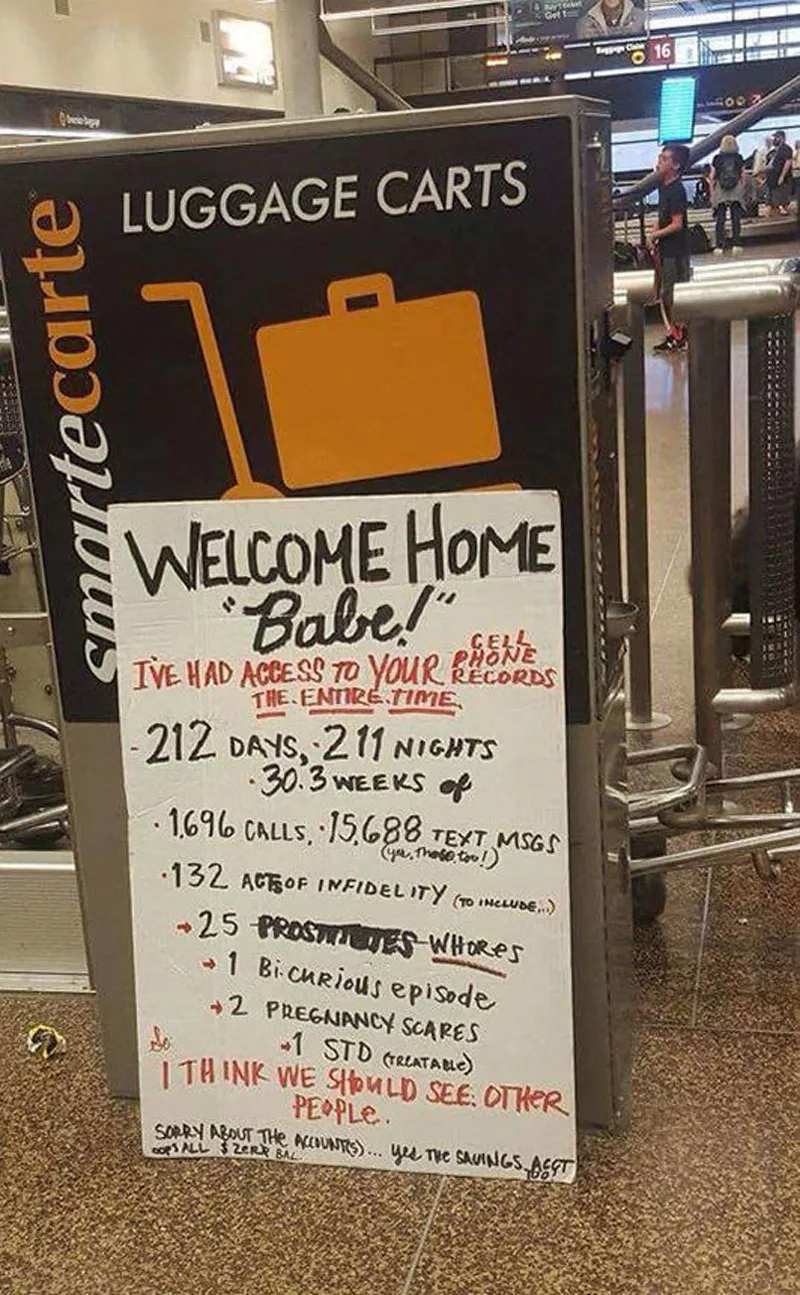 Baggage Claim 16
LUGGAGE CARTS
smartecarte
WELCOME HOME
"Babe!"
I'VE HAD ACCESS TO YOUR CELL PHONE RECORDS
THE ENTIRE TIME.
- 212 DAYS, · 211 NIGHTS
· 30.3 WEEKS of
· 1,696 CALLS, · 15,688 TEXT MSGS
(yes, those too!)
· 132 ACTS OF INFIDELITY (TO INCLUDE...)
→ 25 PROSTITUTES WHORES
→ 1 Bi-curious episode
→ 2 PREGNANCY SCARES
→ 1 STD (TREATABLE)
So
I THINK WE SHOULD SEE OTHER
PEOPLE.
SORRY ABOUT THE ACCOUNT(S)... yes THE SAVINGS ACCT
OOPS ALL $ ZERO BAL. TOO